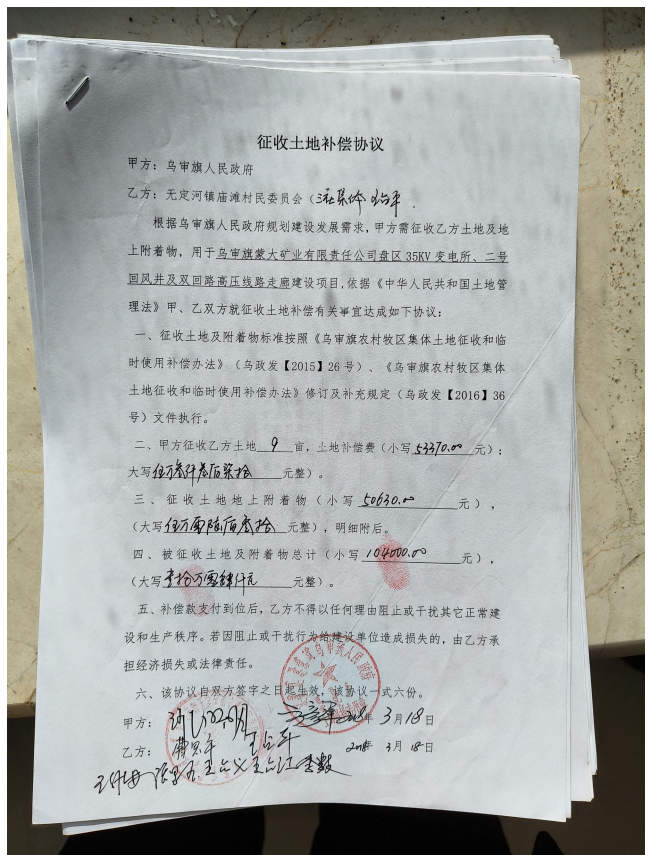 征收土地补偿协议
甲方：乌审旗人民政府
乙方：无定河镇庙滩村民委员会（三社集体 王占平
根据乌审旗人民政府规划建设发展需求，甲方需征收乙方土地及地
上附着物，用于乌审旗蒙大矿业有限责任公司盘区35KV变电所、二号
回风井及双回路高压线路走廊建设项目,依据《中华人民共和国土地管
理法》甲、乙双方就征收土地补偿有关事宜达成如下协议：
一、征收土地及附着物标准按照《乌审旗农村牧区集体土地征收和临
时使用补偿办法》（乌政发【2015】26号）、《乌审旗农村牧区集体
土地征收和临时使用补偿办法》修订及补充规定（乌政发【2016】36
号）文件执行。
二、甲方征收乙方土地 9 亩，土地补偿费（小写 53370.00 元）；
大写伍万叁仟叁佰柒拾 元整）。
三、征收土地地上附着物（小写 50630.00 元），
（大写伍万零陆佰叁拾 元整），明细附后。
四、被征收土地及附着物总计（小写 104000.00 元），
（大写壹拾万零肆仟元 元整）。
五、补偿款支付到位后，乙方不得以任何理由阻止或干扰其它正常建
设和生产秩序。若因阻止或干扰行为给建设单位造成损失的，由乙方承
担经济损失或法律责任。
六、该协议自双方签字之日起生效，该协议一式六份。
甲方： 2018年 3月18日
乙方： 王占平 2018年 3月18日
王占义 王占江